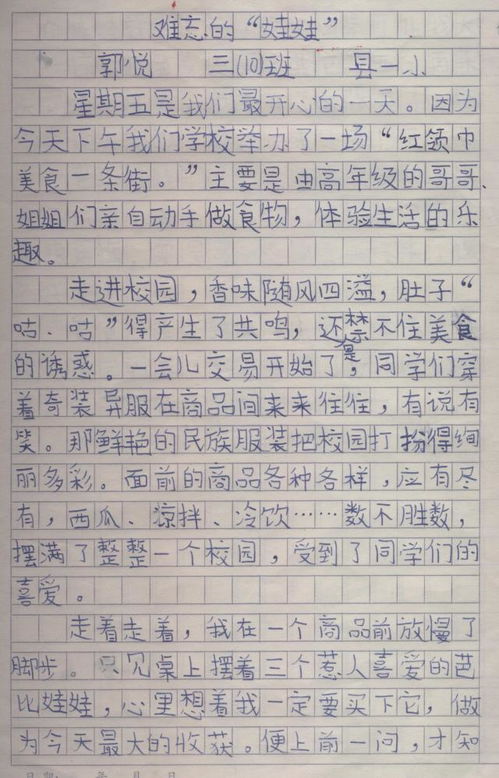 难忘的“娃娃”
郭悦 三(10)班 县一小
星期五是我们最开心的一天。因为
今天下午我们学校举办了一场“红领巾
美食一条街。”主要是由高年级的哥哥、
姐姐们亲自动手做食物，体验生活的乐
趣。
走进校园，香味随风四溢，肚子“
咕、咕”得产生了共鸣，还是禁不住美食
的诱惑。一会儿交易开始了，同学们穿
着奇装异服在商品间来来往往，有说有
笑。那鲜艳的民族服装把校园打扮得绚
丽多彩。面前的商品各种各样，应有尽
有，西瓜、凉拌、冷饮……数不胜数，
摆满了整整一个校园，受到了同学们的
喜爱。
走着走着，我在一个商品前放慢了
脚步。只见桌上摆着三个惹人喜爱的芭
比娃娃，心里想着我一定要买下它，做
为今天最大的收获。便上前一问，才知
年 月 日